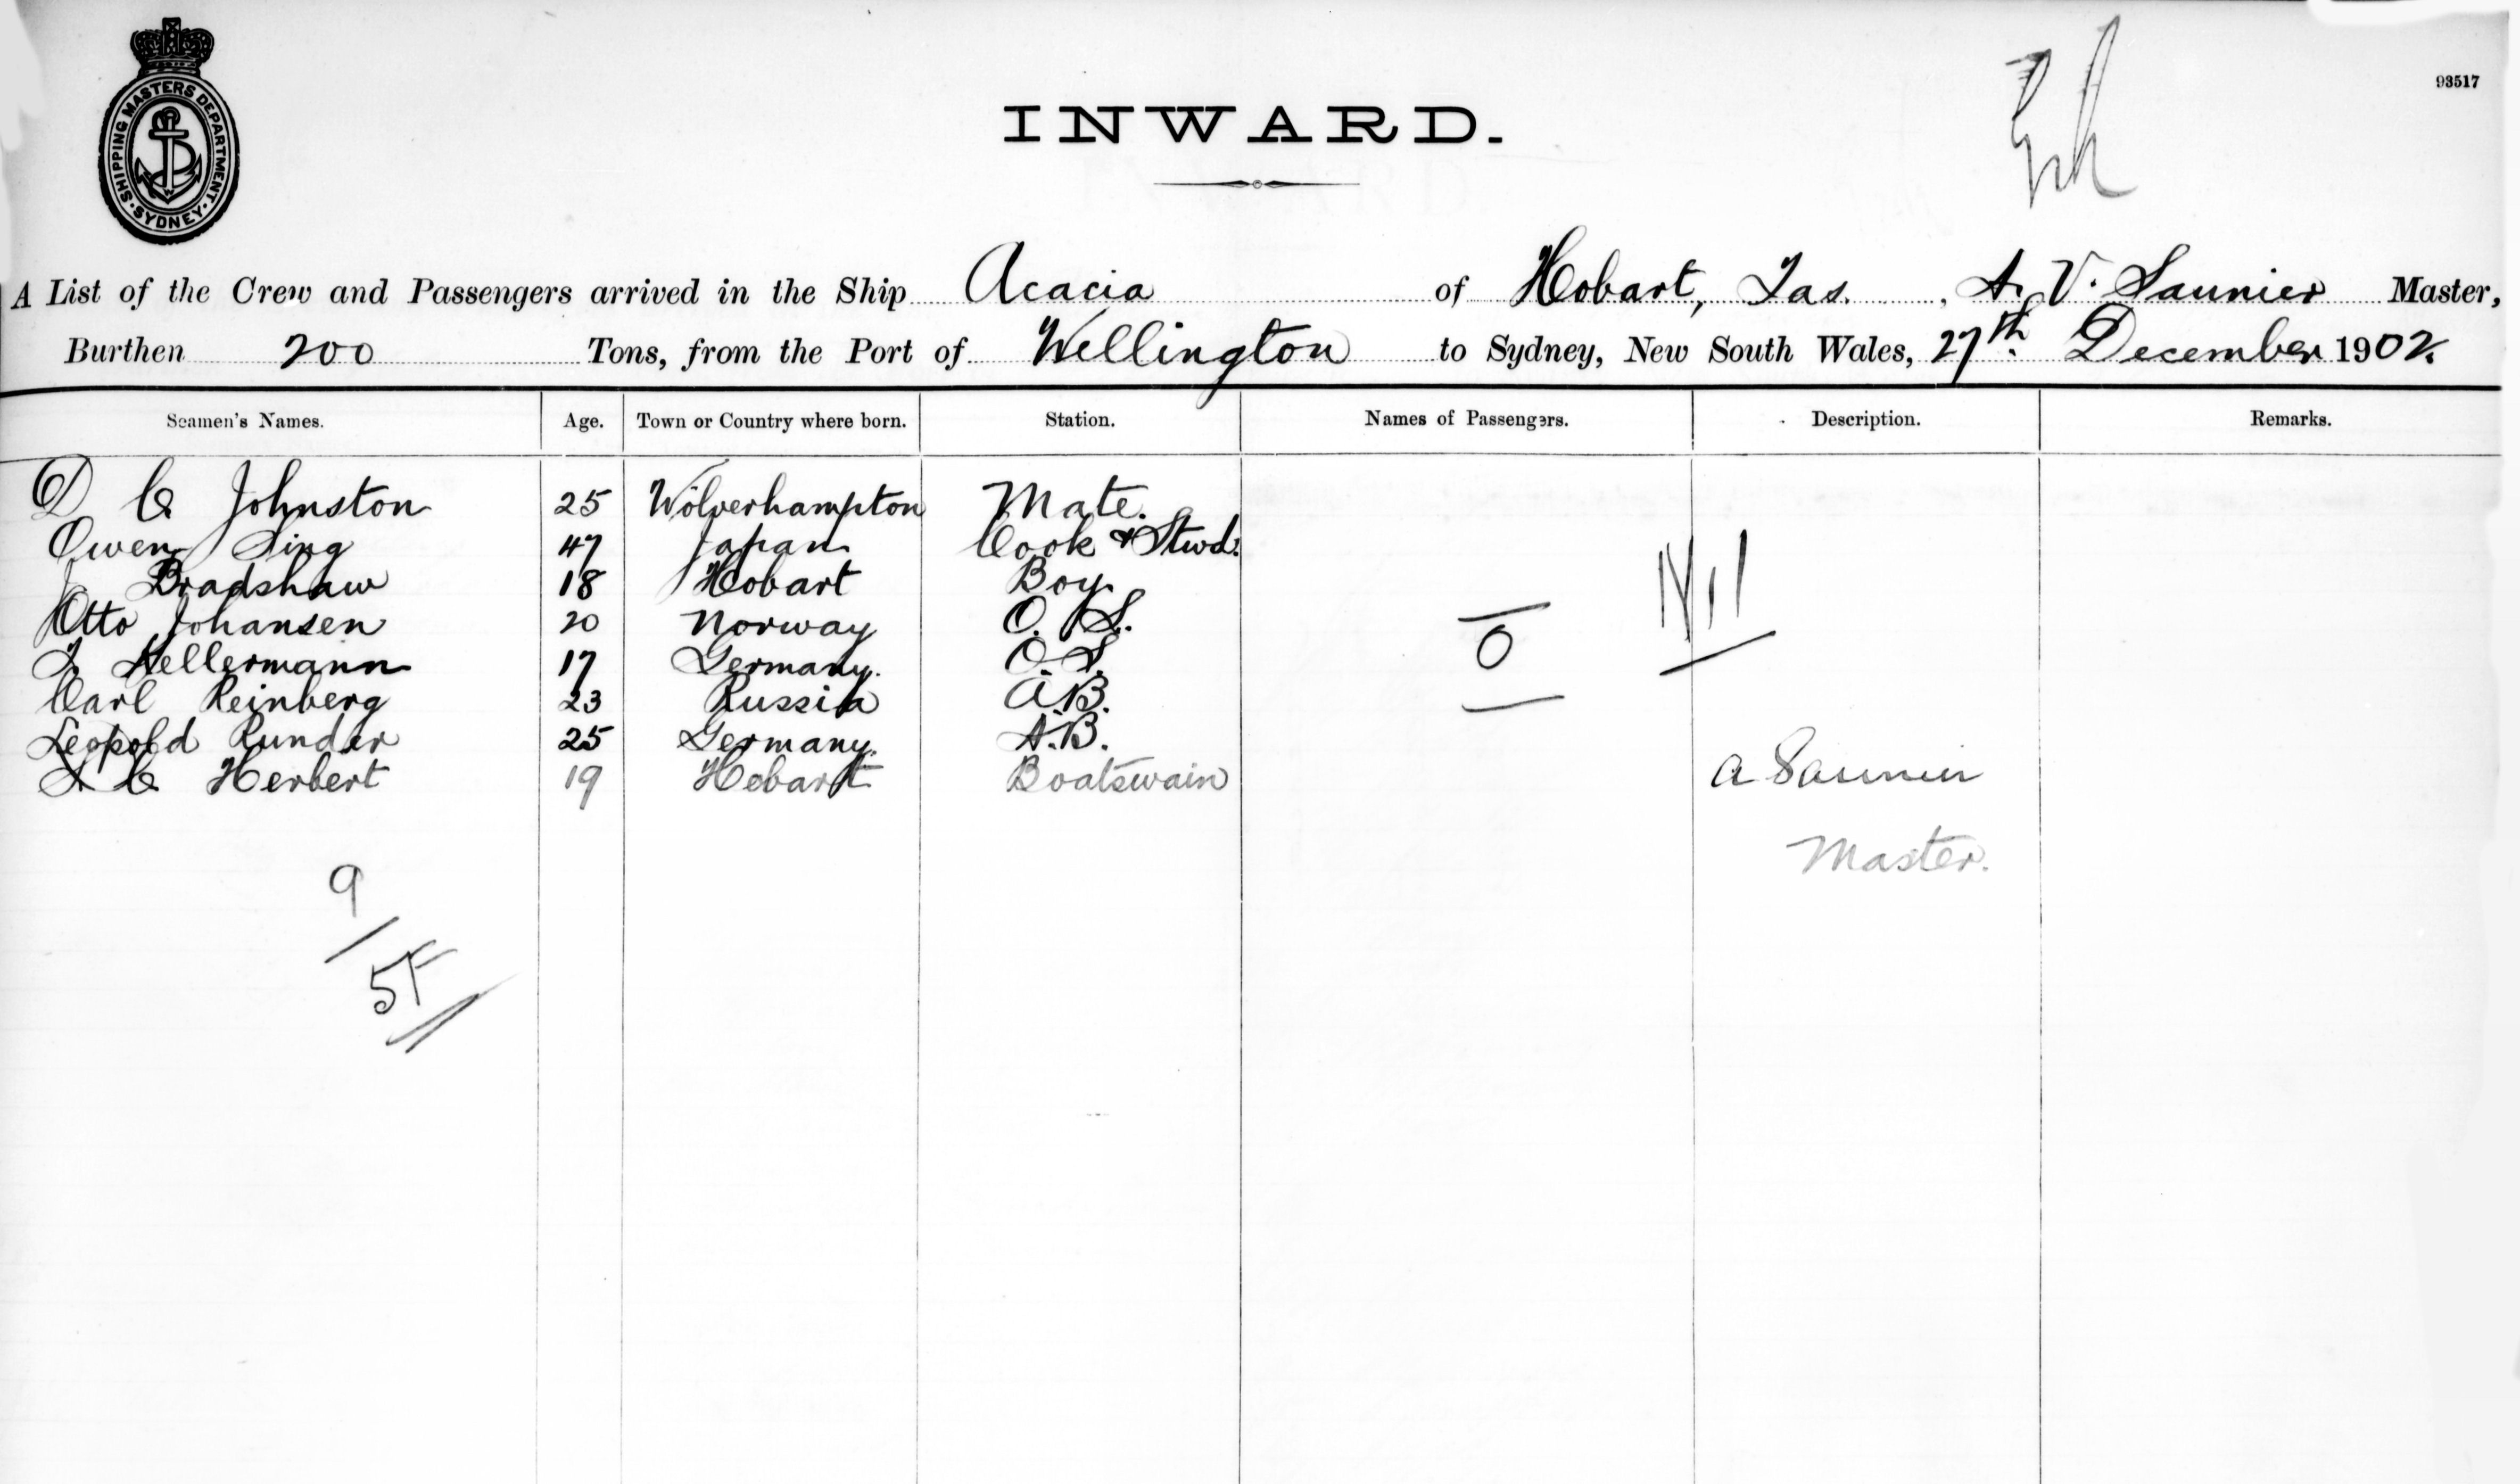 SHIPPING MASTERS DEPARTMENT. SYDNEY.
93517
INWARD.
A List of the Crew and Passengers arrived in the Ship Acacia of Hobart, Tas., A. V. Saunier Master,
Burthen 200 Tons, from the Port of Wellington to Sydney, New South Wales, 27th December 1902.
Seamen's Names. Age. Town or Country where born. Station. Names of Passengers. Description. Remarks.
D C Johnston 25 Wolverhampton Mate.
Owen Sing 47 Japan Cook & Stwd.
J Bradshaw 18 Hobart Boy
Otto Johansen 20 Norway O. S.
Hellermann 17 Germany. O. S.
Carl Reinberg 23 Russia A.B.
Leopold Runder 25 Germany. A.B.
L C Herbert 19 Hobart Boatswain
0 Nil
A Saunier
Master.
9
5F